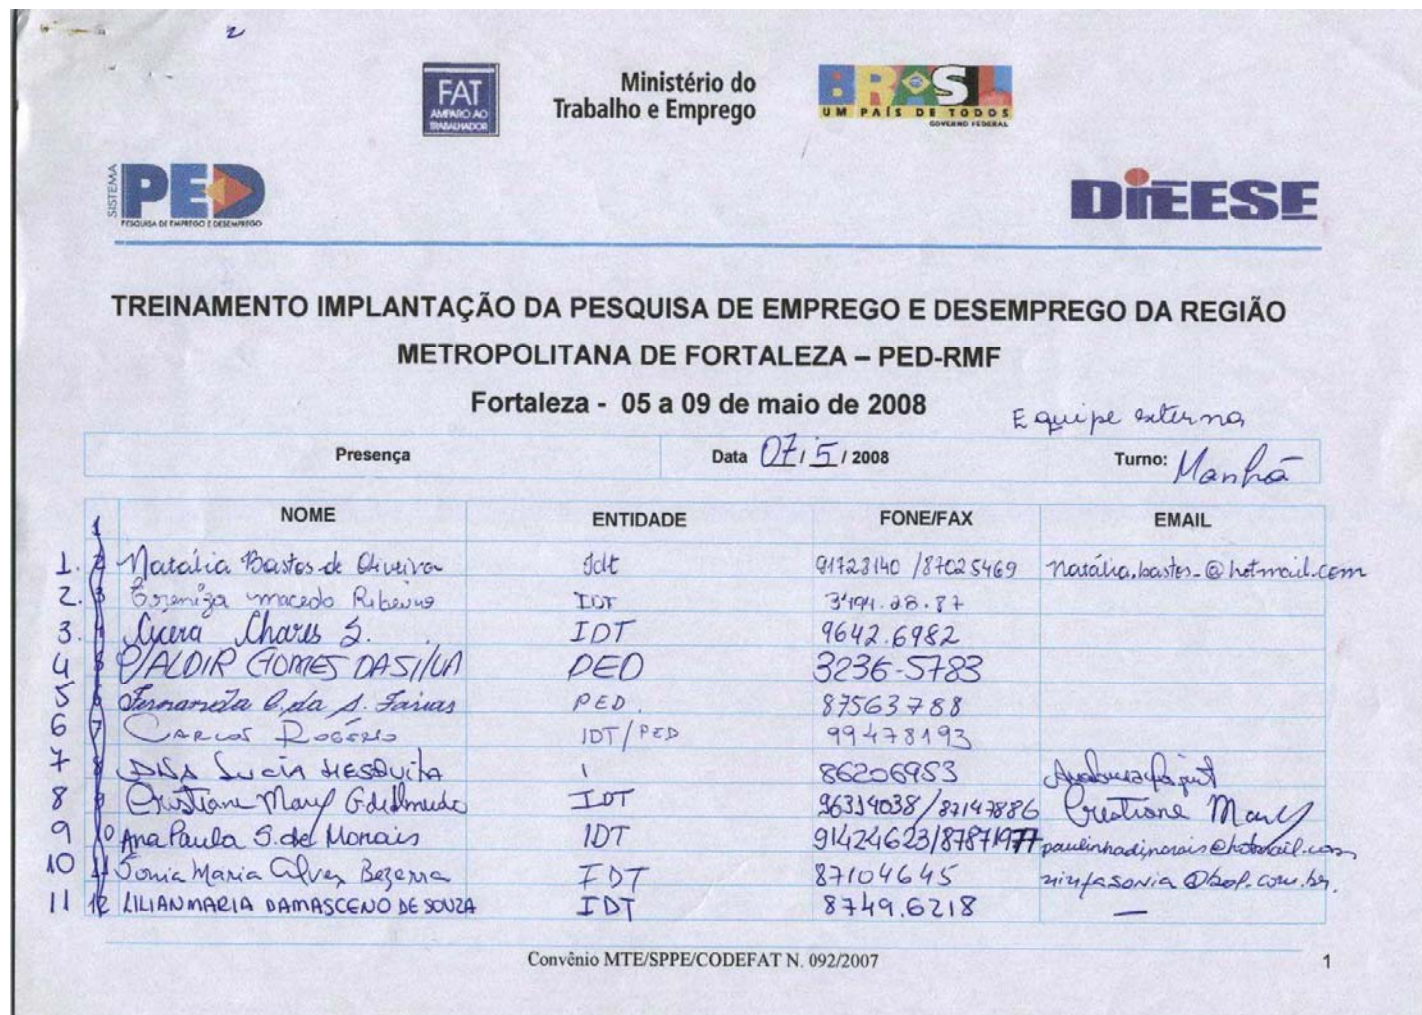 2
FAT
AMPARO AO
TRABALHADOR
Ministério do
Trabalho e Emprego
BRASIL
UM PAÍS DE TODOS
GOVERNO FEDERAL
SISTEMA
PED
PESQUISA DE EMPREGO E DESEMPREGO
DIEESE
TREINAMENTO IMPLANTAÇÃO DA PESQUISA DE EMPREGO E DESEMPREGO DA REGIÃO
METROPOLITANA DE FORTALEZA – PED-RMF
Fortaleza - 05 a 09 de maio de 2008
Equipe externa
Presença Data 07/5/2008 Turno: Manhã
NOME ENTIDADE FONE/FAX EMAIL
1
1. 2 Natália Bastos de Oliveira Idt 91723140 / 87025469 natália.bastos_@hotmail.com
2. 3 macedo Ribeiro IDT 3494.28.87
3. 4 S. IDT 9642.6982
4 5 VALDIR GOMES DA SILVA PED 3236-5783
5 6 Fernanda da S. Farias PED. 87563788
6 7 CARLOS ROGÉRIO IDT/PED 99478193
7 8 ANA LUCIA MESQUITA 86206953
8 9 Cristiane Mary IDT 96314038/87147886 Cristiane Mary
9 10 Ana Paula S. de Morais IDT 91424623/87871977
10 11 Sonia Maria Alves Bezerra IDT 87104645 ninfasonia@bol.com.br.
11 12 LILIAN MARIA DAMASCENO DE SOUZA IDT 8749.6218 —
Convênio MTE/SPPE/CODEFAT N. 092/2007 1